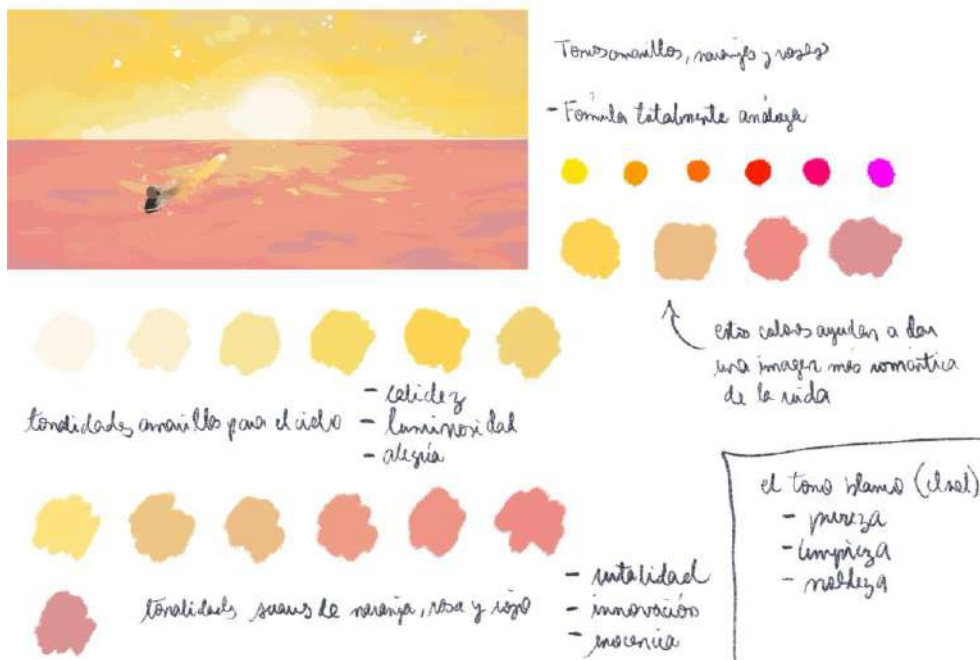 Tonos amarillos, naranjas y rosas
- Fórmula totalmente análoga
estos colores ayudan a dar
una imagen más romántica
de la vida
tonalidades amarillas para el cielo
- calidez
- luminosidad
- alegría
el tono blanco (el sol)
- pureza
- limpieza
- nobleza
tonalidades suaves de naranja, rosa y rojo
- vitalidad
- innovación
- inocencia